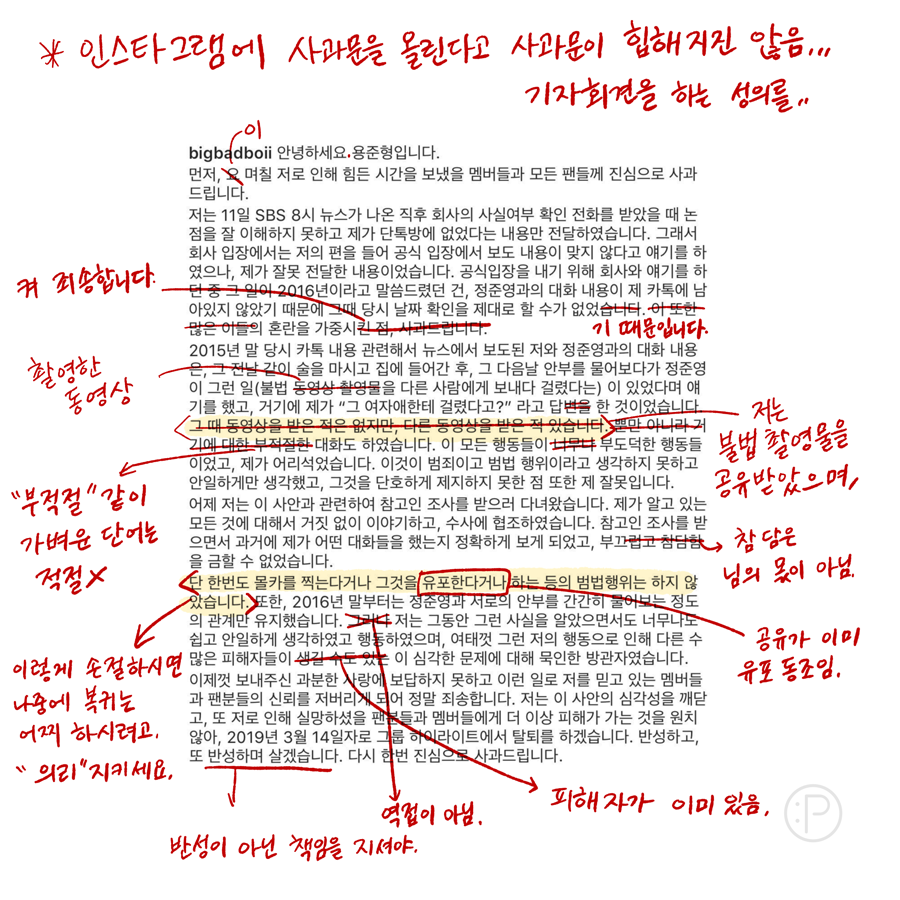 * 인스타그램에 사과문을 올린다고 사과문이 힙해지진 않음...
기자회견을 하는 성의를..
이
bigbadboii 안녕하세요.용준형입니다.
먼저, 요 며칠 저로 인해 힘든 시간을 보냈을 멤버들과 모든 팬들께 진심으로 사과
드립니다.
저는 11일 SBS 8시 뉴스가 나온 직후 회사의 사실여부 확인 전화를 받았을 때 논
점을 잘 이해하지 못하고 제가 단톡방에 없었다는 내용만 전달하였습니다. 그래서
회사 입장에서는 저의 편을 들어 공식 입장에서 보도 내용이 맞지 않다고 얘기를 하
였으나, 제가 잘못 전달한 내용이었습니다. 공식입장을 내기 위해 회사와 얘기를 하
던 중 그 일이 2016년이라고 말씀드렸던 건, 정준영과의 대화 내용이 제 카톡에 남
아있지 않았기 때문에 그때 당시 날짜 확인을 제대로 할 수가 없었습니다. 이 또한
많은 이들의 혼란을 가중시킨 점, 사과드립니다.
켜 죄송합니다.
기 때문입니다.
2015년 말 당시 카톡 내용 관련해서 뉴스에서 보도된 저와 정준영과의 대화 내용
은, 그 전날 같이 술을 마시고 집에 들어간 후, 그 다음날 안부를 물어보다가 정준영
이 그런 일(불법 동영상 촬영물을 다른 사람에게 보내다 걸렸다는) 이 있었다며 얘
기를 했고, 거기에 제가 “그 여자애한테 걸렸다고?” 라고 답변을 한 것이었습니다.
그 때 동영상을 받은 적은 없지만, 다른 동영상을 받은 적 있습니다. 뿐만 아니라 거
기에 대한 부적절한 대화도 하였습니다. 이 모든 행동들이 너무나 부도덕한 행동들
이었고, 제가 어리석었습니다. 이것이 범죄이고 범법 행위이라고 생각하지 못하고
안일하게만 생각했고, 그것을 단호하게 제지하지 못한 점 또한 제 잘못입니다.
촬영한
동영상
저는
불법 촬영물을
공유받았으며,
"부적절"같이
가벼운 단어는
적절X
어제 저는 이 사안과 관련하여 참고인 조사를 받으러 다녀왔습니다. 제가 알고 있는
모든 것에 대해서 거짓 없이 이야기하고, 수사에 협조하였습니다. 참고인 조사를 받
으면서 과거에 제가 어떤 대화들을 했는지 정확하게 보게 되었고, 부끄럽고 참담함
을 금할 수 없었습니다.
참담은
님의 몫이 아님.
단 한번도 몰카를 찍는다거나 그것을 유포한다거나 하는 등의 범법행위는 하지 않
았습니다. 또한, 2016년 말부터는 정준영과 서로의 안부를 간간히 물어보는 정도
의 관계만 유지했습니다. 그러나 저는 그동안 그런 사실을 알았으면서도 너무나도
쉽고 안일하게 생각하였고 행동하였으며, 여태껏 그런 저의 행동으로 인해 다른 수
많은 피해자들이 생길 수도 있는 이 심각한 문제에 대해 묵인한 방관자였습니다.
이제껏 보내주신 과분한 사랑에 보답하지 못하고 이런 일로 저를 믿고 있는 멤버들
과 팬분들의 신뢰를 저버리게 되어 정말 죄송합니다. 저는 이 사안의 심각성을 깨닫
고, 또 저로 인해 실망하셨을 팬분들과 멤버들에게 더 이상 피해가 가는 것을 원치
않아, 2019년 3월 14일자로 그룹 하이라이트에서 탈퇴를 하겠습니다. 반성하고,
또 반성하며 살겠습니다. 다시 한번 진심으로 사과드립니다.
공유가 이미
유포 동조임.
이렇게 손절하시면
나중에 복귀는
어찌 하시려고.
"의리"지키세요.
피해자가 이미 있음.
역접이 아님.
반성이 아닌 책임을 지셔야.
:P